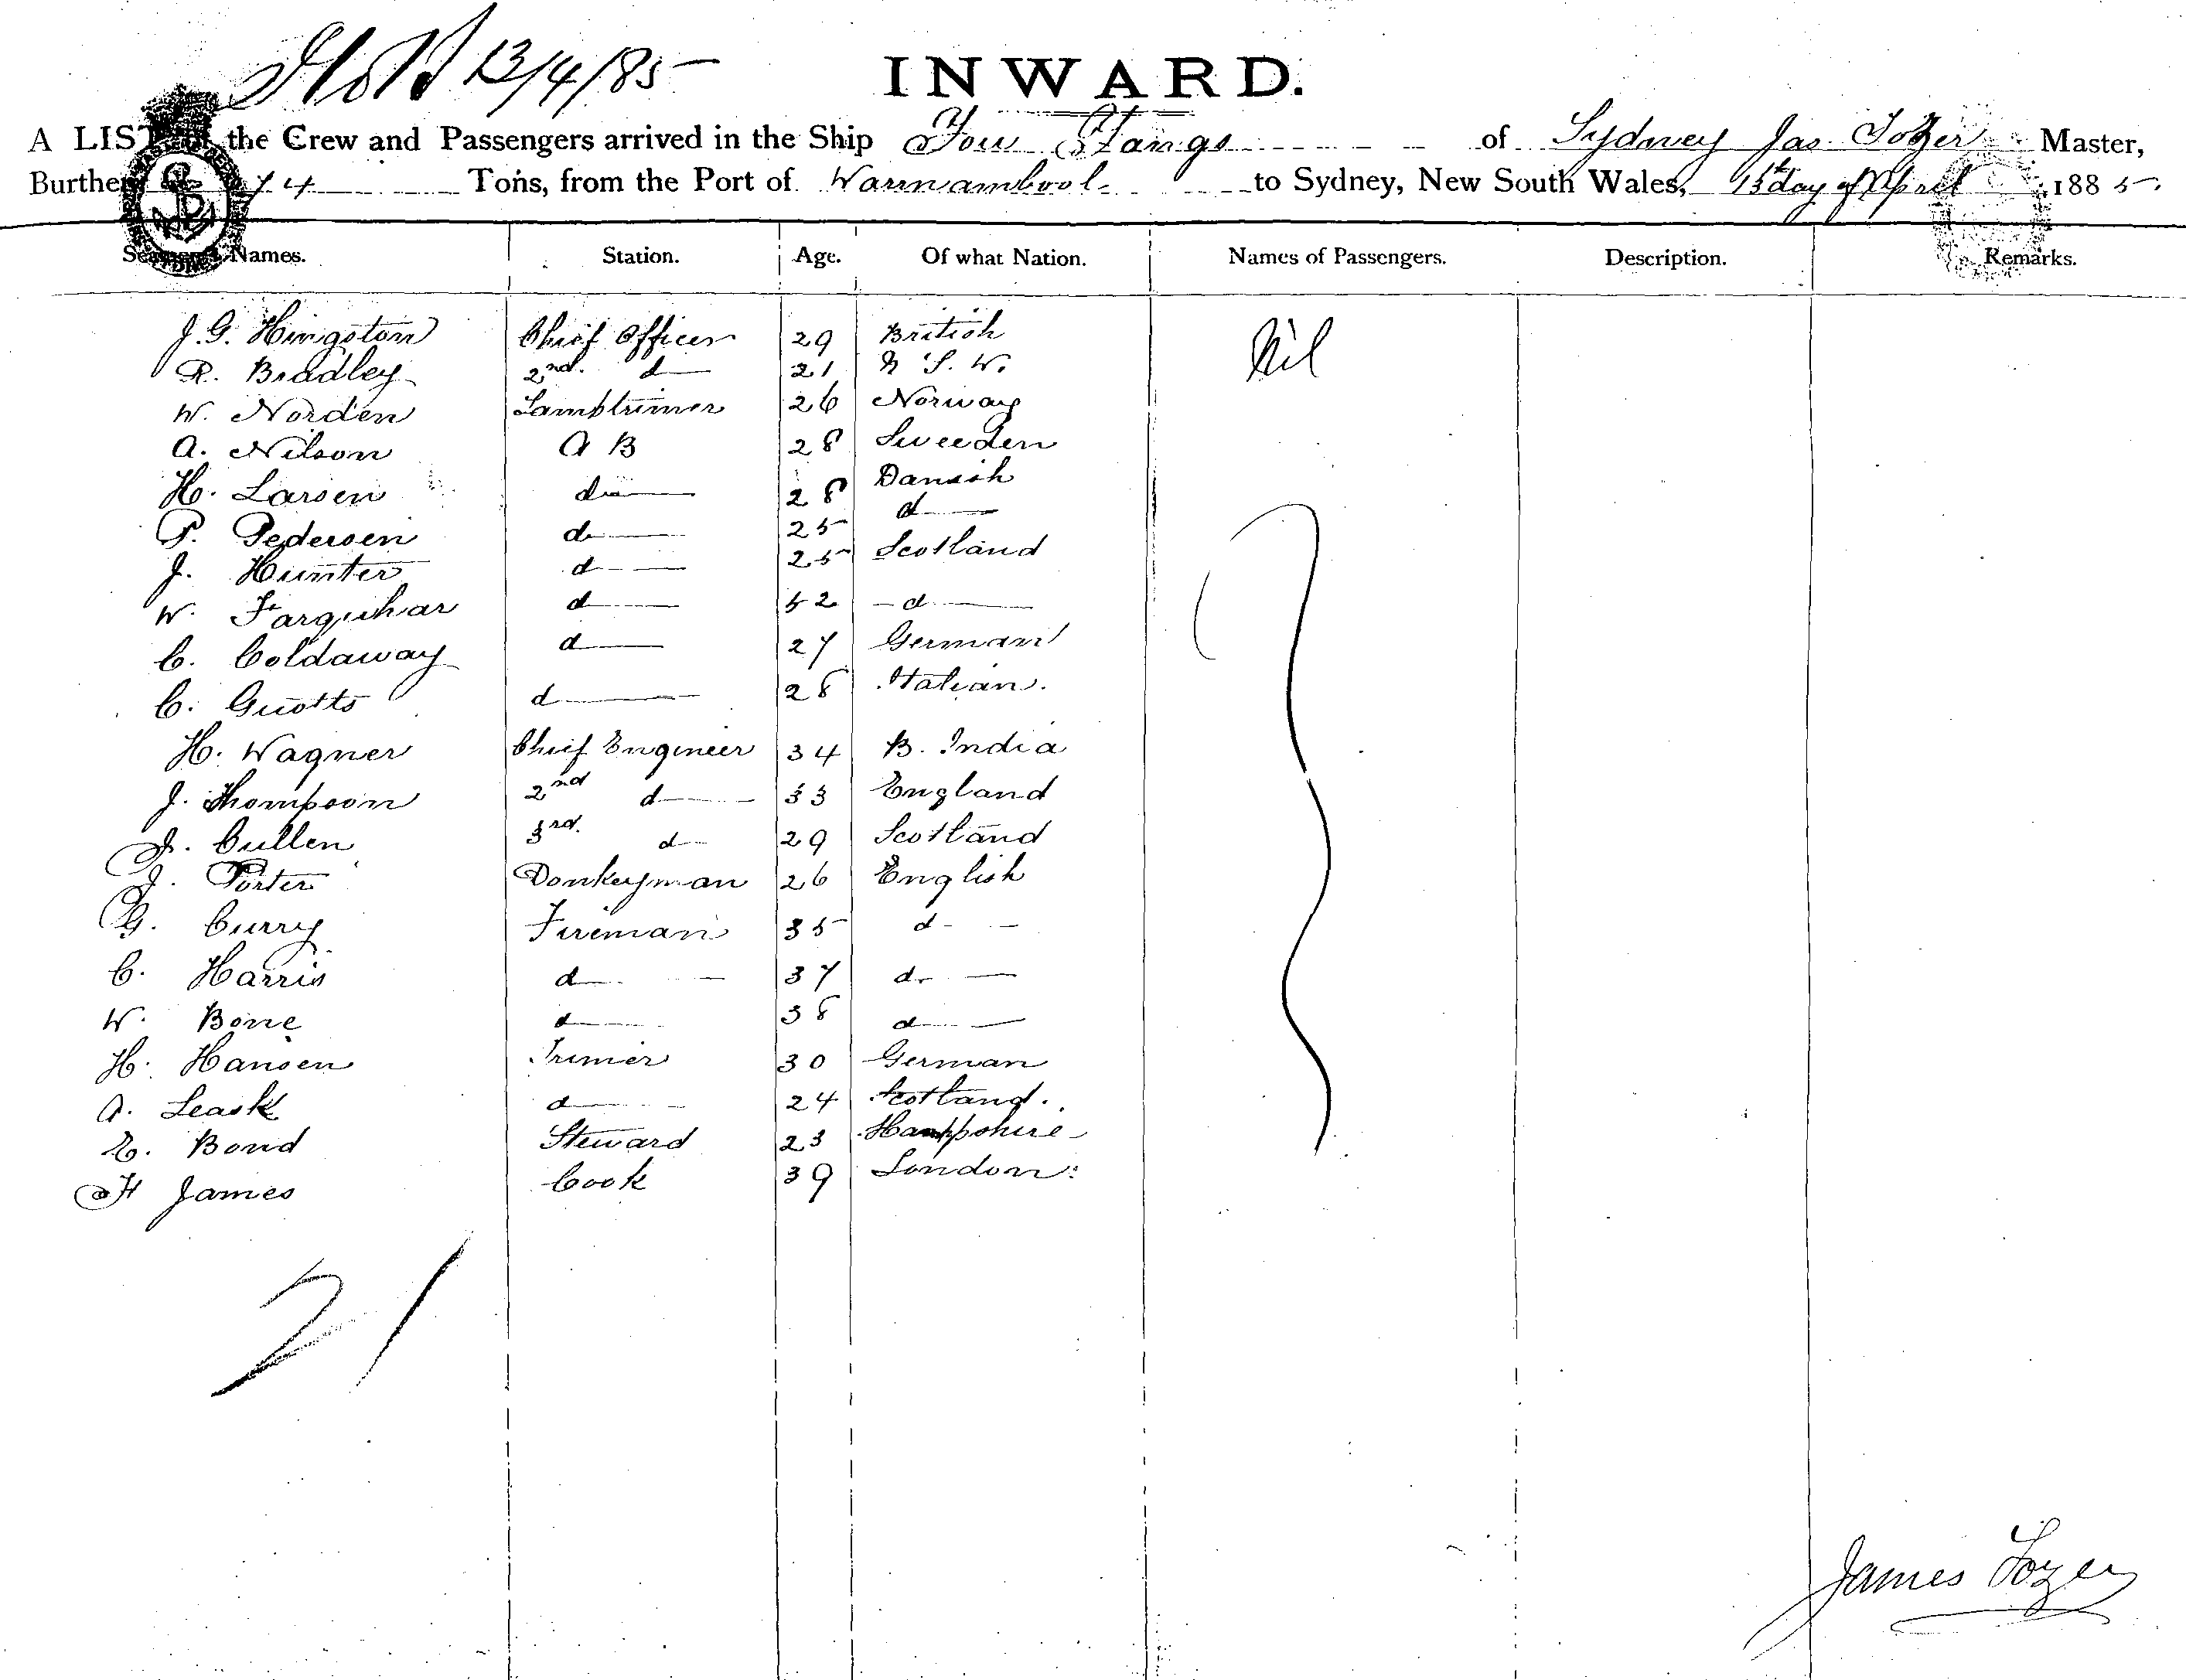 13/4/85
INWARD.
A LIST of the Crew and Passengers arrived in the Ship You Yangs of Sydney Jas. Tozer Master,
Burthen 74 Tons, from the Port of Warrnambool to Sydney, New South Wales, 13th day of April 1885.
Seamen's Names. Station. Age. Of what Nation. Names of Passengers. Description. Remarks.
J. G. Hingston Chief Officer 29 British Nil
R. Bradley 2nd. d 21 N S. W.
W. Norden Lamptrimer 26 Norway
A. Nilson A B 28 Sweeden
H. Larsen do 28 Danish
P. Pedersen d 25 d
J. Hunter d 25 Scotland
W. Farquhar d 52 d
C. Coldaway d 27 German
C. Guotts d 28 Italian.
H. Wagner Chief Engineer 34 B. India
J. Thompson 2nd d 33 England
J. Cullen 3rd. d 29 Scotland
J. Porter Donkeyman 26 English
G. Curry Fireman 35 d
C. Harris d 37 d
W. Bone d 38 d
H. Hansen Trimer 30 German
A. Leask d 24 Scotland.
E. Bond Steward 23 Hampshire
H James Cook 39 London
21
James Tozer